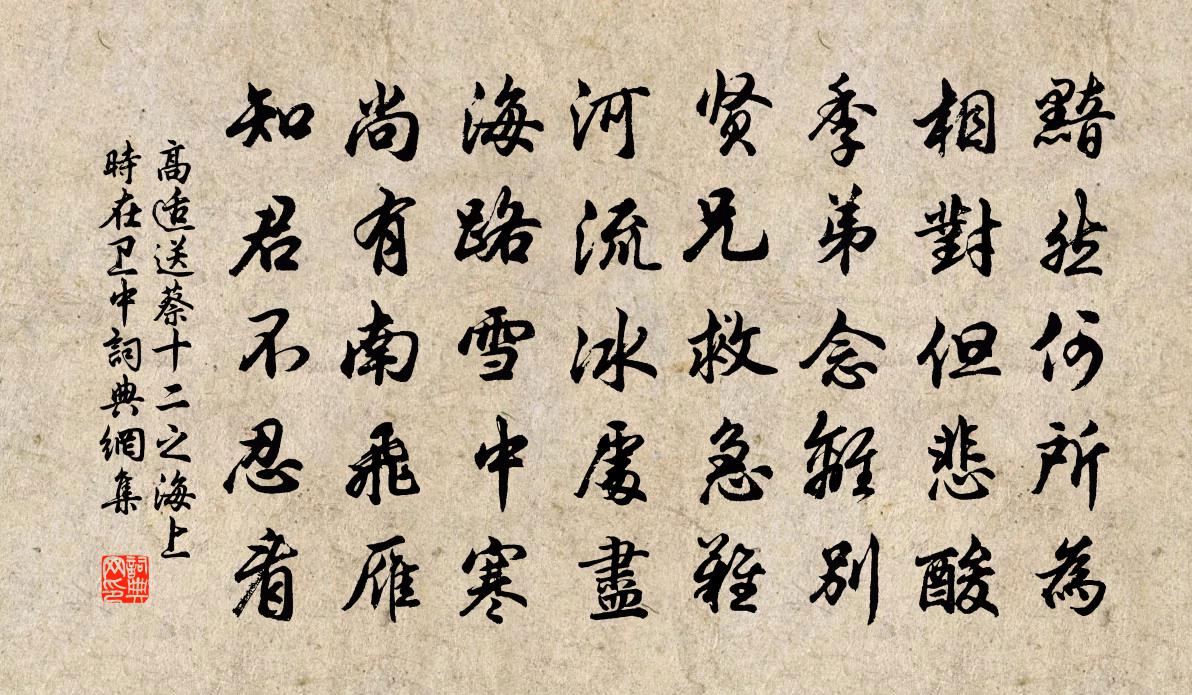 黯然何所為
相對但悲酸
季弟念離別
贤兄救急難
河流冰處盡
海路雪中寒
尚有南飛雁
知君不忍看
高适送蔡十二之海上
時在卫中詞典網集
詞典网印